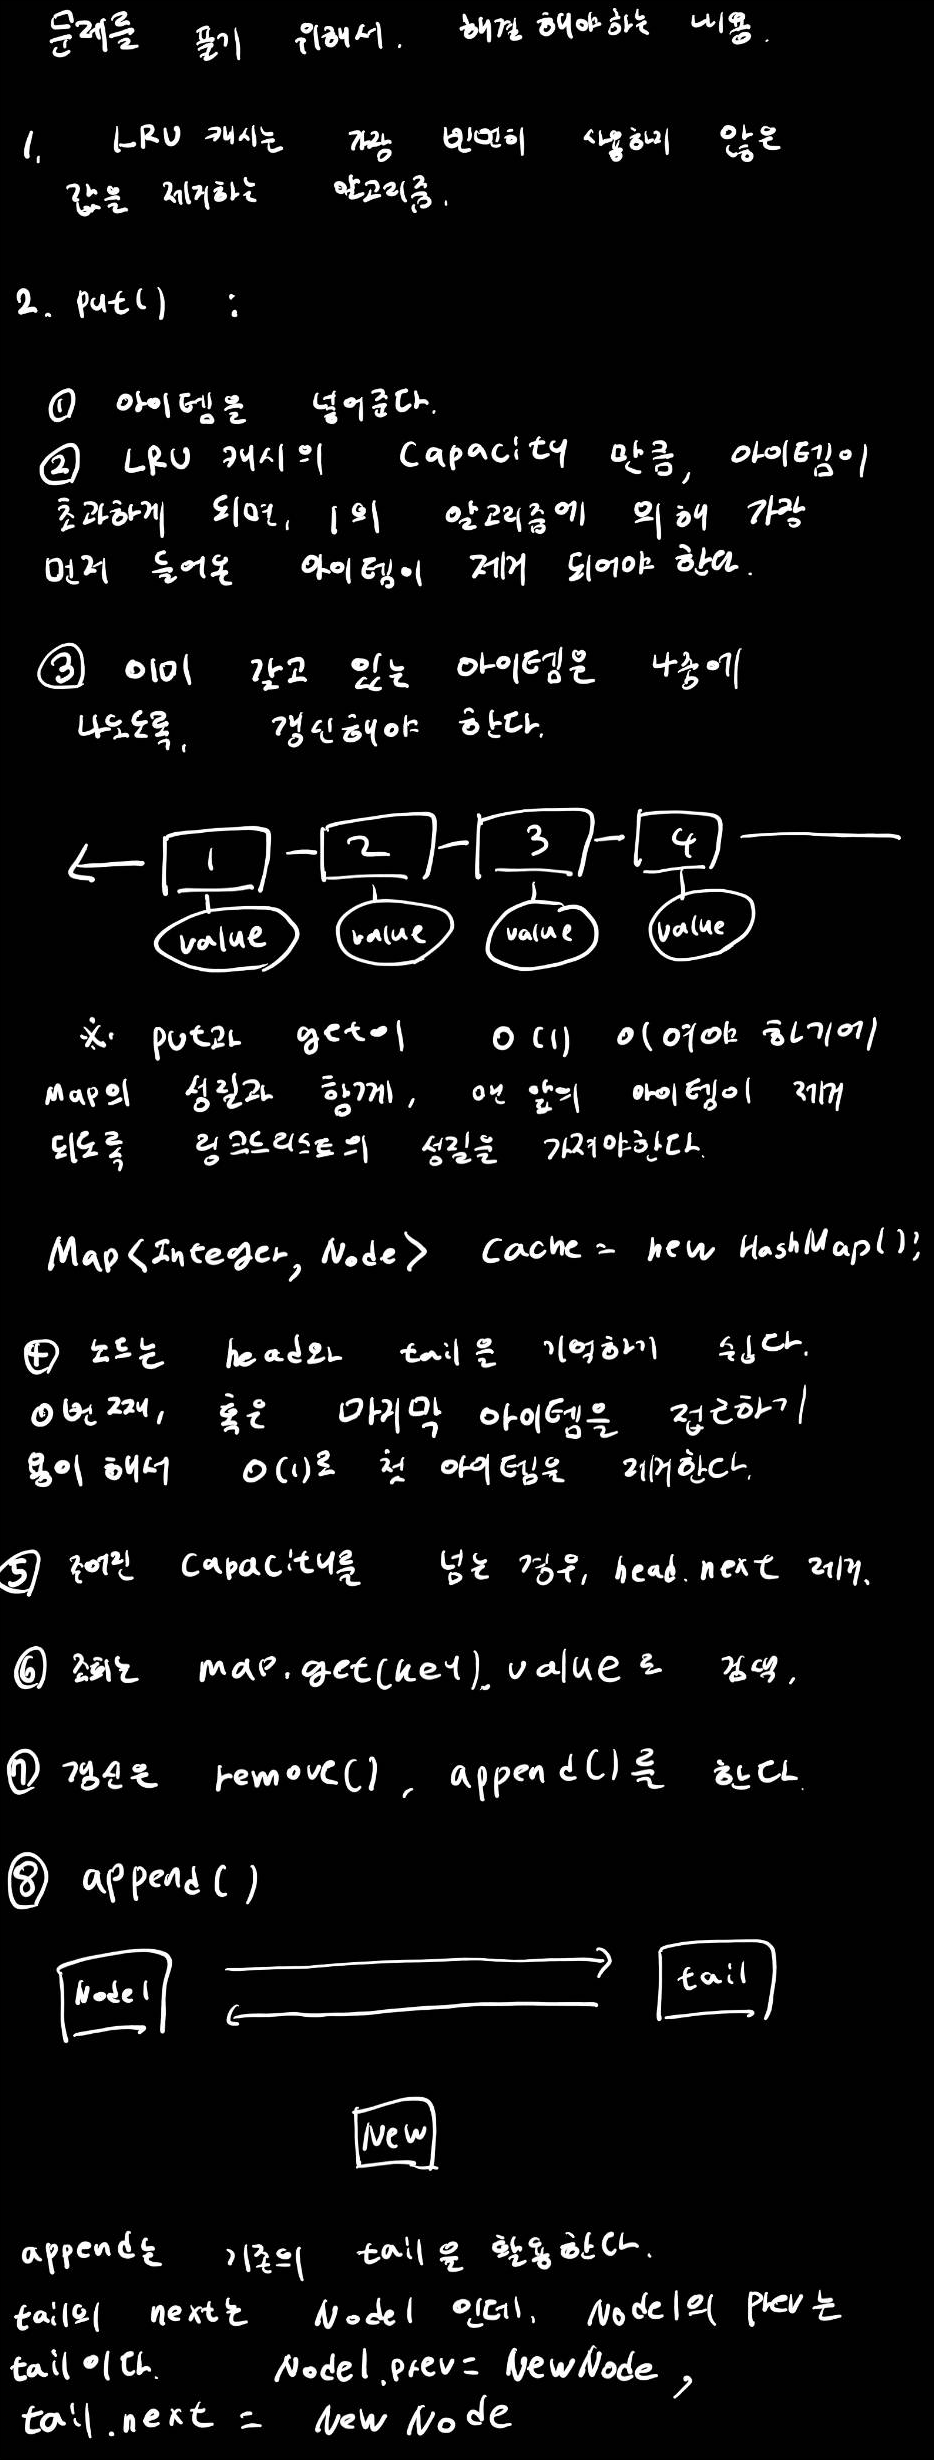 문제를 풀기 위해서. 해결 해야하는 내용.
1. LRU 캐시는 가장 빈번히 사용하지 않은
값을 제거하는 알고리즘.
2. put() :
① 아이템을 넣어준다.
② LRU 캐시의 Capacity 만큼, 아이템이
초과하게 되면, 1의 알고리즘에 의해 가장
먼저 들어온 아이템이 제거 되어야 한다.
③ 이미 갖고 있는 아이템은 나중에
나오도록, 갱신해야 한다.
1 2 3 4
value value value value
※. put과 get이 O(1) 이여야 하기에
Map의 성질과 함께, 맨 앞의 아이템이 제거
되도록 링크드리스트의 성질을 가져야한다.
Map<Integer, Node> Cache = new HashMap();
④ 노드는 head와 tail을 기억하기 쉽다.
0번째, 혹은 마지막 아이템을 접근하기
용이해서 O(1)로 첫 아이템을 제거한다.
⑤ 주어진 Capacity를 넘는 경우, head.next 제거.
⑥ 조회는 map.get(key).value로 검색.
⑦ 갱신은 remove(), append()를 한다.
⑧ append()
Node1 tail
New
append는 기존의 tail을 활용한다.
tail의 next는 Node1 인데, Node1의 prev는
tail이다. Node1.prev = NewNode,
tail.next = New Node